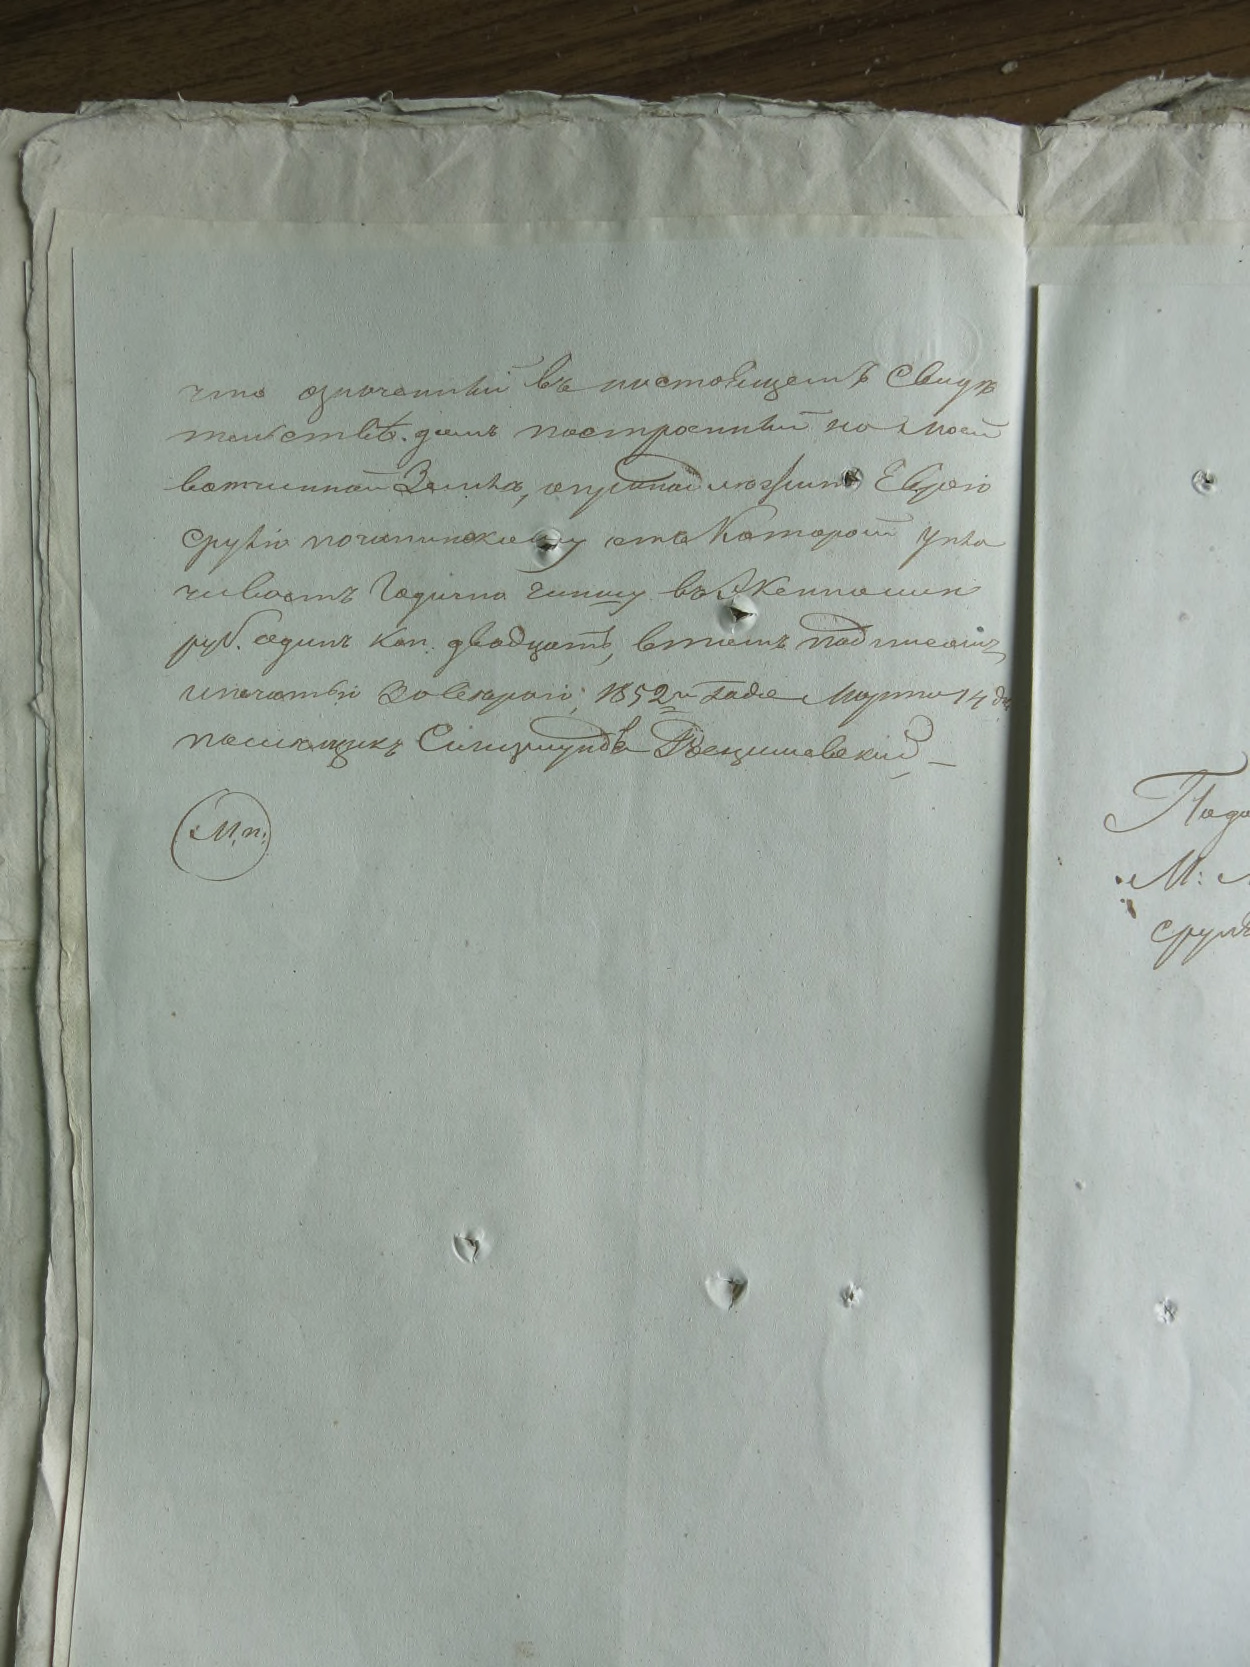 что означенный въ настоящемъ Свидѣ
тельствѣ домъ построенный на моей
вотчинной Землѣ, принадлежитъ Еврею
Срулю отъ Которой упла
чиваетъ Годично чиншу въ Економию
руб. одинъ коп. двадцать, въ томъ подписомъ
и печатью Заверяю; 1852 Года Марта 14 дн
помещикъ Сигизмундъ
М. п.
Пода
М:
Срул